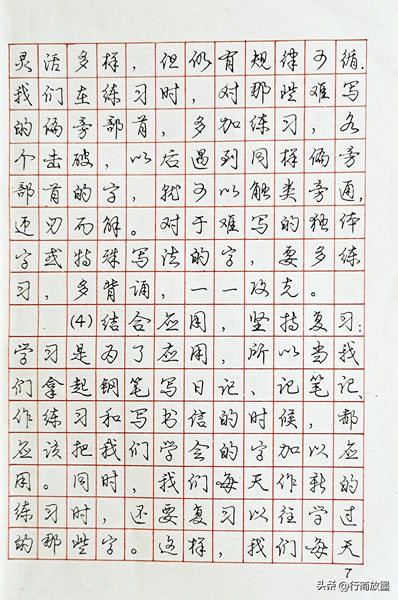 灵活多样，但仍有规律可循.
我们在练习时，对那些难写
的偏旁部首，多加练习，各
个击破，以后遇到同样偏旁
部首的字，就可以触类旁通，
迎刃而解。对于难写的独体
字或特殊写法的字，要多练
习，多背诵，一一攻克。
(4)结合应用，坚持复习：
学习是为了应用，所以当我
们拿起钢笔写日记、记笔记、
作练习和写书信的时候，都
应该把我们学会的字加以应
用。同时，我们每天作新的
练习时，还要复习以往学过
的那些字。这样，我们每天
7
头条@行简放墨